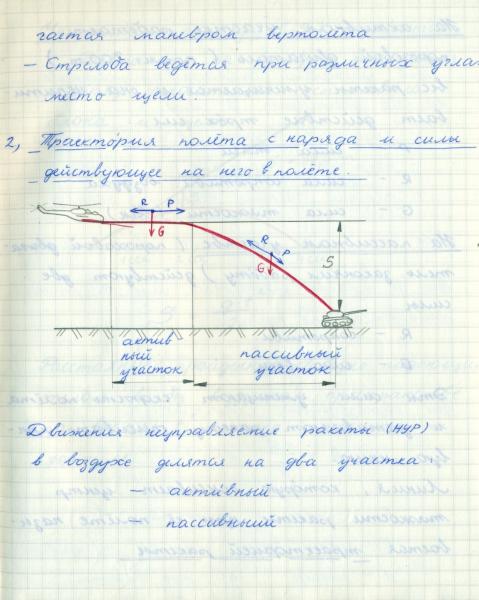 гается маневром вертолёта
– Стрельба ведётая при различных угла
место цели.
2, Траектория полёта снаряда и силы
действующее на него в полёте.
R P
G
R P
G
S
актив
ный
участок
пассивный
участок
Движения неуправляемие ракеты (НУР)
в воздухе делятся на два участка,
– активный
– пассивныий